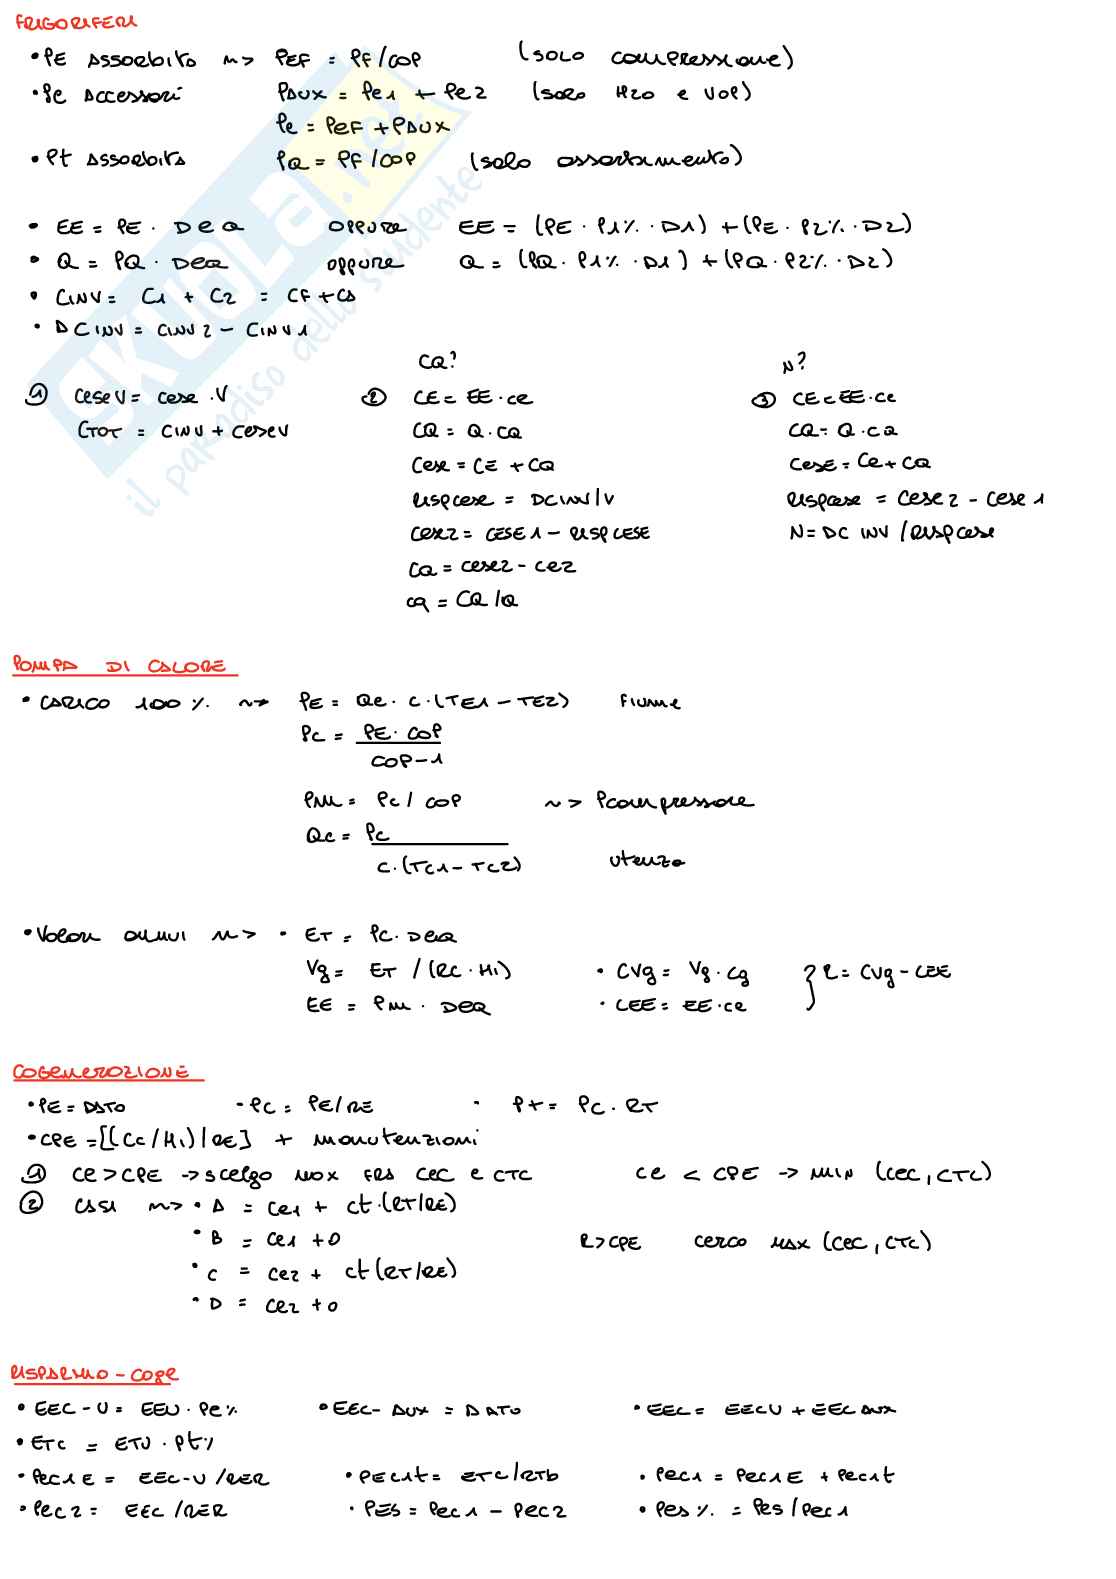 FRIGORIFERI
• PE ASSORBITO ~> PEF = PF/COP (solo compressione)
• Pe ACCESSORI PAUX = Pe1 + Pe2 (solo H2O e VOP)
Pe = PeF + PAUX
• Pt ASSORBITA PQ = PF/COP (solo assorbimento)
• EE = PE · Deq oppure EE = (PE · P1% · D1) + (PE · P2% · D2)
• Q = PQ · Deq oppure Q = (PQ · P1% · D1) + (PQ · P2% · D2)
• CINV = C1 + C2 = CF + CA
• DCINV = CINV2 - CINV1
CQ? N?
① CeseV = cese · V ② CE = EE · ce ③ CE = EE · ce
CTOT = CINV + CeseV CQ = Q · cq CQ = Q · cq
Cese = CE + CQ CesE = Ce + CQ
RISPcese = DCINV/V RISPcese = CESE2 - CESE1
Cese2 = CESE1 - RISPCESE N = DCINV/RISPcese
CQ = cese2 - ce2
cq = CQ/Q
SKUOLA.net
il paradiso dello studente
POMPA DI CALORE
• CARICO 100% ~> PE = Qe · C · (TE1 - TE2) FIUME
PC = PE · COP
COP - 1
PM = Pc / COP ~> Pcompressore
Qc = Pc
C · (TC1 - TC2) utenza
• Valori annui ~> • ET = PC · Deq
Vg = ET / (RC · Hi) • CVg = Vg · cg } R = CVg - CEE
EE = PM · Deq • CEE = EE · ce
COGENERAZIONE
• PE = DATO • PC = PE/RE • Pt = PC · RT
• CPE = [(Cc/Hi)/RE] + manutenzioni
① ce > CPE -> scelgo max FRA CEC e CTC ce < CPE -> MIN (CEC, CTC)
② CASI ~> • A = ce1 + ct · (RT/RE)
• B = ce1 + 0 R > CPE cerco MAX (CEC, CTC)
• C = ce2 + ct (RT/RE)
• D = ce2 + 0
RISPARMIO - COGE
• EEC-U = EEU · Pe% • EEC-AUX = DATO • EEC = EECU + EECAUX
• ETC = ETU · Pt%
• PEC1E = EEC-U/RER • PEC1t = ETC/RTb • PEC1 = PEC1E + PEC1t
• PEC2 = EEC/RER • PES = PEC1 - PEC2 • PES% = PES/PEC1